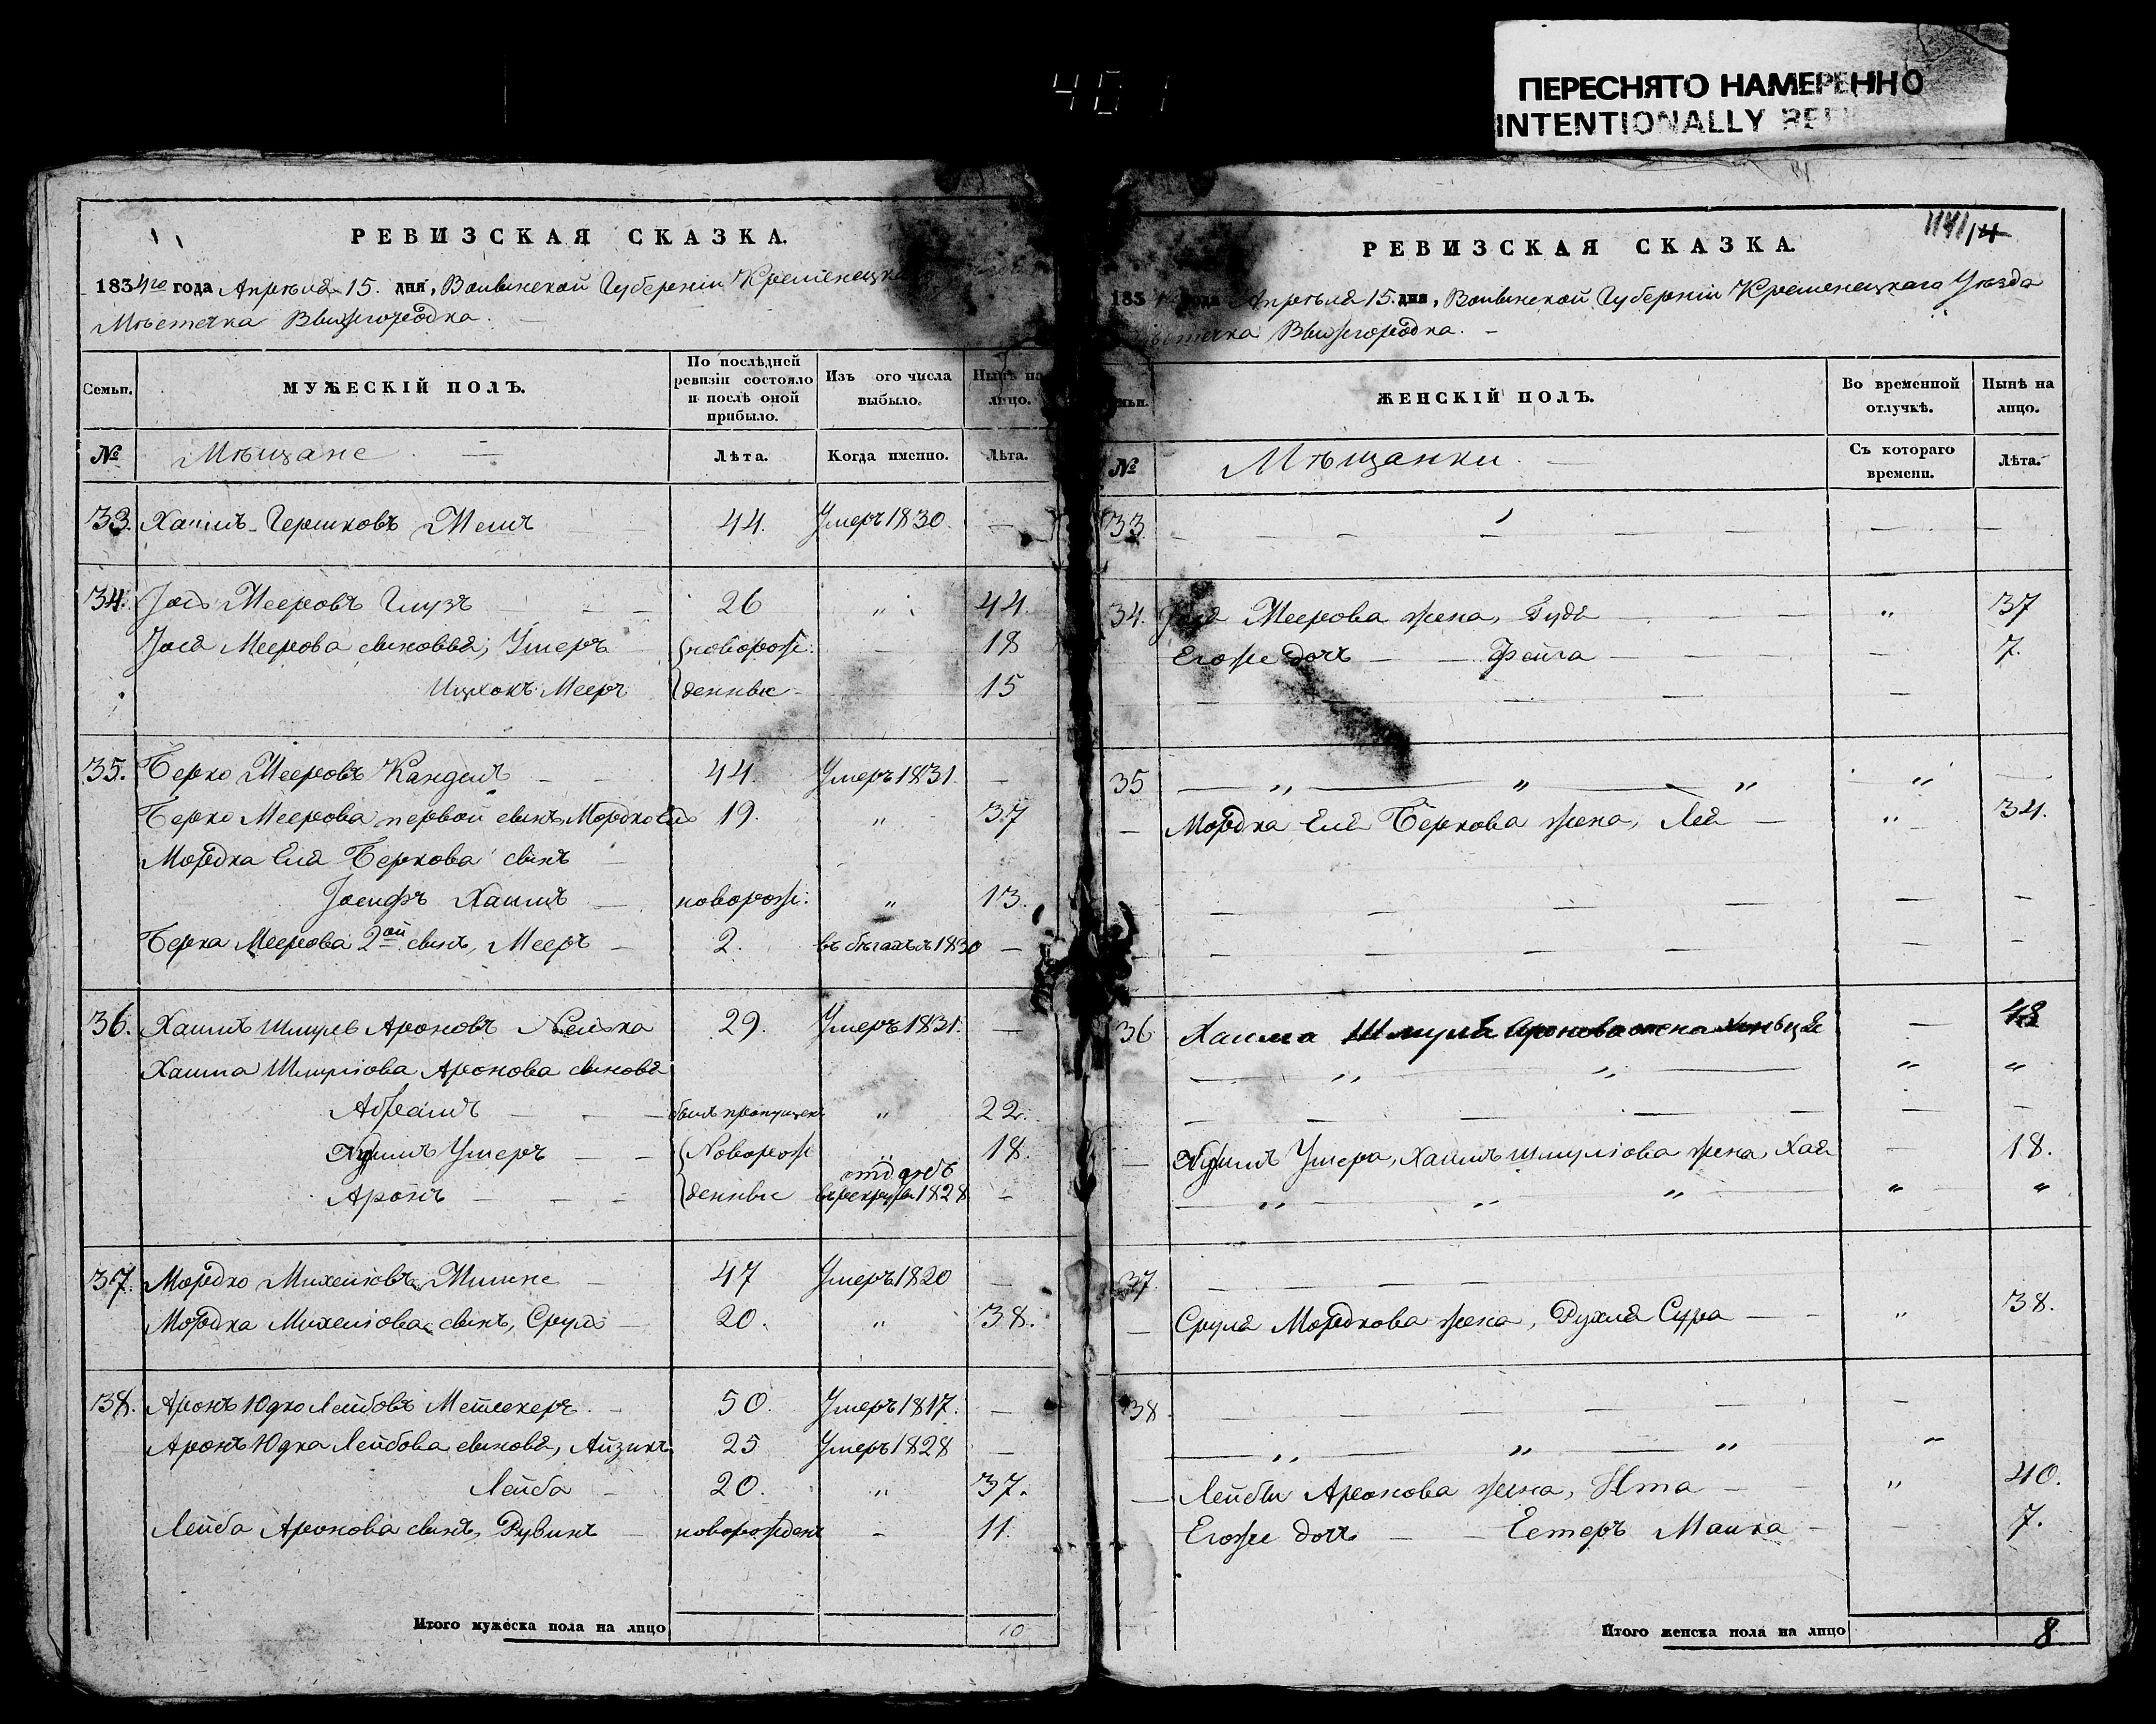 401
ПЕРЕСНЯТО НАМЕРЕННО
INTENTIONALLY
РЕВИЗСКАЯ СКАЗКА.
1834го года Апрѣля 15. дня, Волынской Губерніи Кременецка
Мѣстечка Вышгородка.
Семьи. МУЖЕСКІЙ ПОЛЪ. По послѣдней ревизіи состояло и послѣ оной прибыло. Изъ ого числа выбыло. Нынѣ на лицо.
№ Мѣщане Лѣта. Когда именно. Лѣта.
33. Хаимъ Гершковъ 44. Умеръ 1830. —
34. Іось Мееровъ 26 „ 44.
Іося Меерова сыновья, Умеръ {новорож: — 18
Ицхокъ Мееръ {денные — 15
35. Берко Мееровъ Кандель 44. Умеръ 1831. —
Берко Меерова первой сынъ, Мордко Ель 19. „ 37
Мордка Еля Беркова сынъ
Іосифъ Хаимъ новорож: „ 13.
Берка Меерова 2ой сынъ, Мееръ 2. въ бѣгахъ 1830 —
36. Хаимъ Шмуль Ароновъ 29. Умеръ 1831. —
Хаима Шмулiова Аронова сыновя
Абрамъ былъ пропущенъ „ 22.
Умеръ {Новорож „ 18.
Аронъ {денные отданъ въ рекруты 1828 —
37. Мордко Михелiовъ 47 Умеръ 1820 —
Мордка Михелiова сынъ, Сруль 20. „ 38.
38. Аронъ Юдко Лейбовъ 50. Умеръ 1817. —
Аронъ Юдка Лейбова сыновя, Айзикъ 25 Умеръ 1828 —
Лейба 20. „ 37.
Лейба Аронова сынъ, Рувинъ новорожденъ — 11.
Итого мужеска пола на лицо 10
РЕВИЗСКАЯ СКАЗКА.
183 года Апрѣля 15. дня, Волынской Губерніи Кременецкаго Уѣзда
Мѣстечка Вышгородка.
ЖЕНСКІЙ ПОЛЪ. Во временной отлучкѣ. Нынѣ на лицо.
№ Мѣщанки. Съ котораго времени. Лѣта.
33 — — —
34. Іося Меерова жена, Буда „ 37
Егоже дочь — — Фейга 7.
35 „ „ „ „ —
Мордка Еля Беркова жена, Лея „ 34.
36 Хаима Шмуля Аронова жена — 48
„ „ „ „
Умера, Хаимъ Шмулiова жена Хая — 18.
„ „ „ „ „
37. — — —
Сруля Мордкова жена, Рухля Сура „ 38.
38. — — —
„ „ „ „
Лейбы Аронова жена, Ита „ 40.
Егоже дочь — — Естеръ Малка 7.
Итого женска пола на лицо 8